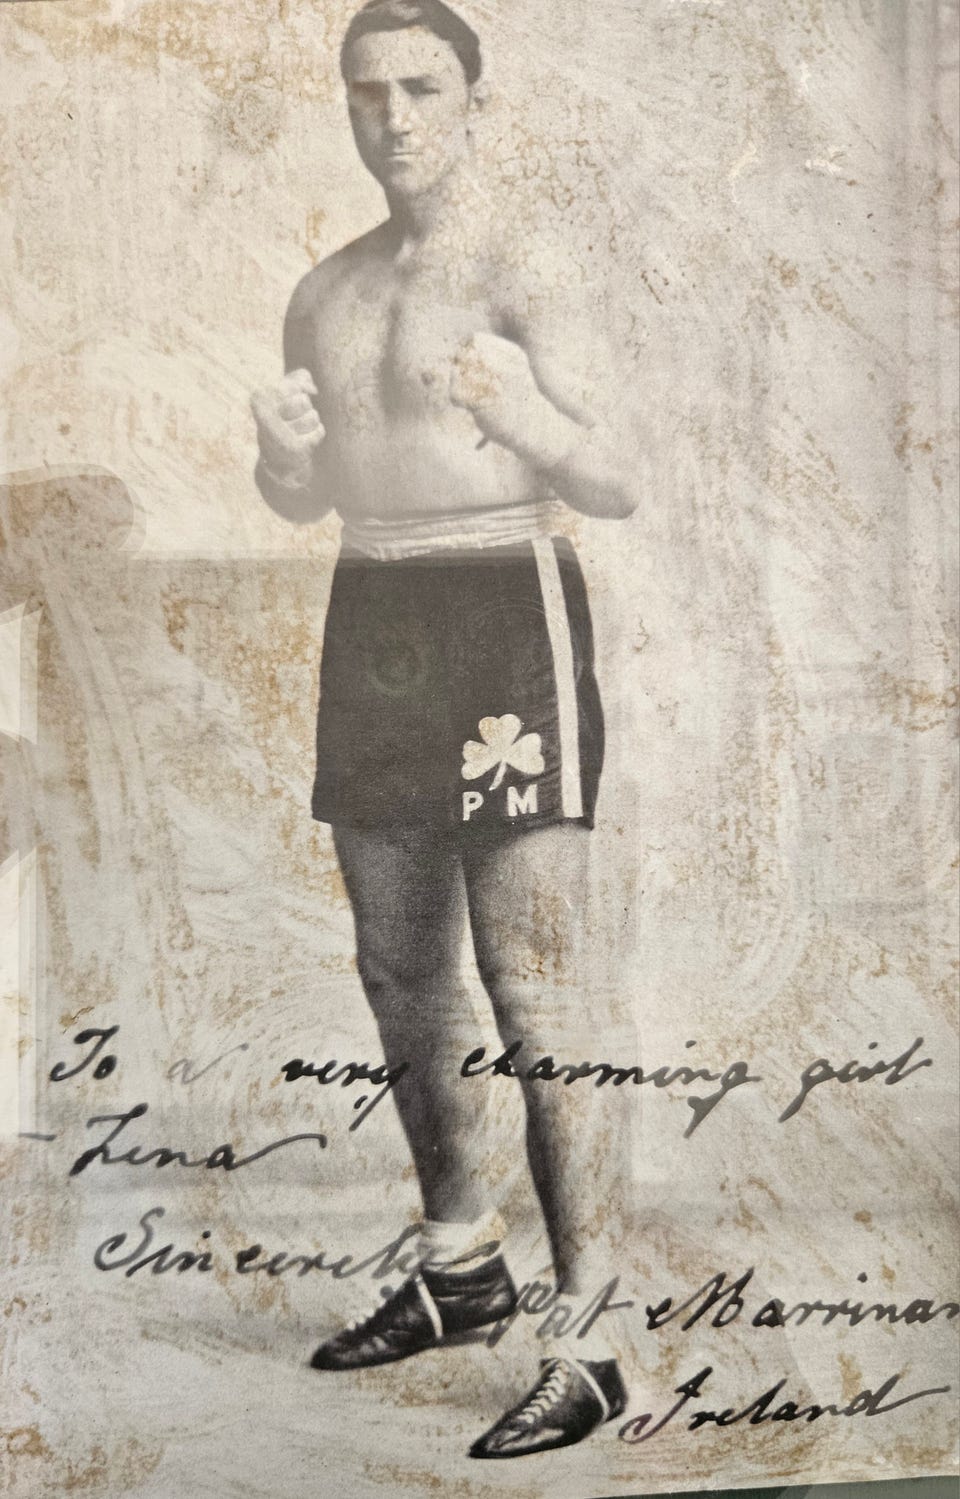 P M
To a very charming girl
Lena
Sincerely
Pat Marrinan
Ireland